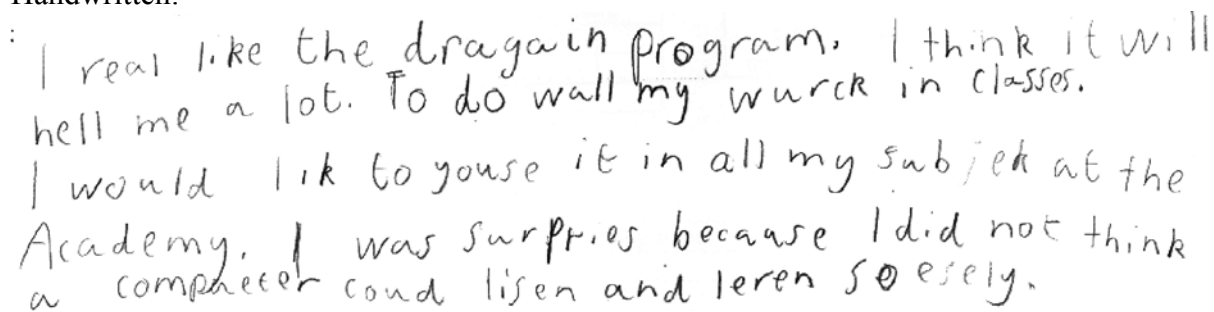 Handwritten:
: I real like the dragain program. I think it will
hell me a lot. To do wall my wurck in classes.
I would lik to youse it in all my subjek at the
Academy. I was surppries because I did not think
a comphecer coud lisen and leren so esely.